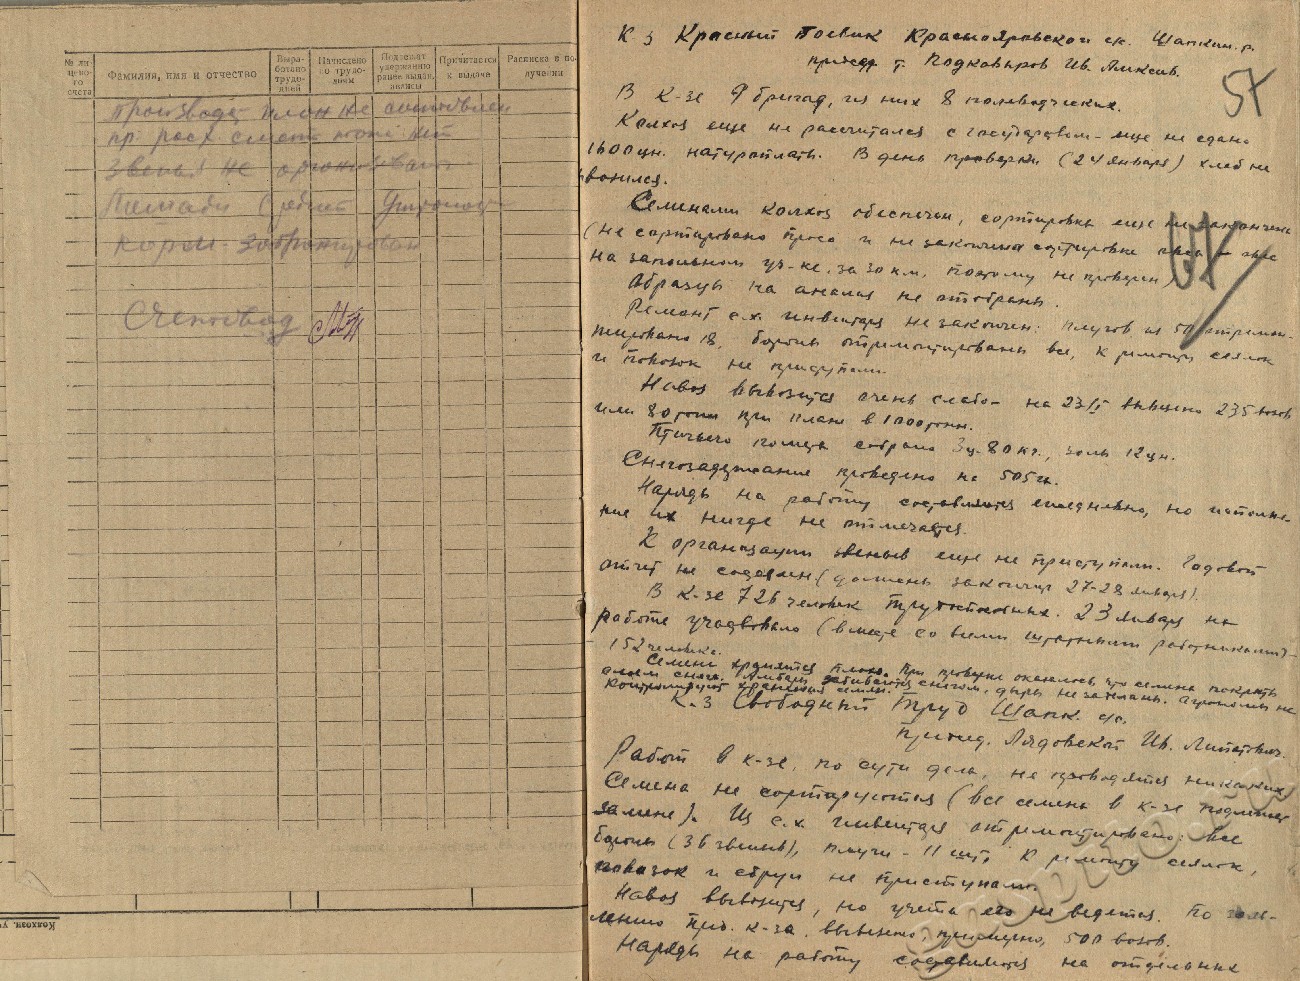 № ли-
цево-
го
счета
Фамилия, имя и отчество
Выра-
ботано
трудо-
дней
Начислено
по трудо-
дням
Подлежат
удержанию
ранее выдан.
авансы
Причитается
к выдаче
Расписка в по-
лучении
Производ. план не составлен
пр. расх. смет тоже нет
Звенья не организованы
Лошади средней упитанности
корм забронирован
Счетовод
Колхозн. уч
К-з Красный Боевик Красноярского с/с. Шапкин. р.
предс. т. Подковыров Ив. Алексив.
57
В к-зе 9 бригад, из них 8 полеводческих.
Колхоз еще не рассчитался с государством - еще не сдано
1600 цн. натуроплаты. В день проверки (24 января) хлеб не
возился.
Семенами колхоз обеспечен, сортировка еще не закончена
(не сортировано просо и не закончена сортировка
на запольном уч-ке, за 30 км, поэтому не проверен)
Образцы на анализ не отобраны.
Ремонт с.х. инвентаря не закончен: плугов из 50 отремон-
тировано 18, бороны отремонтированы все, к ремонту сеялок
и повозок не приступали.
Навоз вывозится очень слабо - на 23/I вывезено 235 возов
или 80 тонн при плане в 1000 тонн.
Птичьего помета собрано 3 ц. 80 кг., золы 12 цн.
Снегозадержание проведено на 505 га.
Наряды на работу составляются ежедневно, но исполне-
ние их нигде не отмечается.
К организации звеньев еще не приступали. Годовой
отчет не составлен (должены закончить 27-28 января).
В к-зе 726 человек трудоспособных. 23 января на
работе участвовало (вместе со всеми штатными работниками) -
152 человека.
Семена хранятся плохо. При проверке оказалось, что семена покрыты
слоем снега. Амбары забиваются снегом, дыры не заделаны. Агрономы не
контролируют хранения семян.
К-з Свободный Труд Шапк. с/с.
Пред. Лядовской Ив. Липатович.
Работ в к-зе, по сути дела, не проводятся никаких
Семена не сортируются (все семена в к-зе подлежат
замене). Из с.х. инвентаря отремонтировано: все
бороны (36 звеньев), плуги - 11 шт, к ремонту сеялок,
повозок и сбруи не приступали.
Навоз вывозится, но учета его не ведется. По заяв-
лению пред. к-за, вывезено, примерно, 500 возов.
Наряды на работу составляются на отдельных